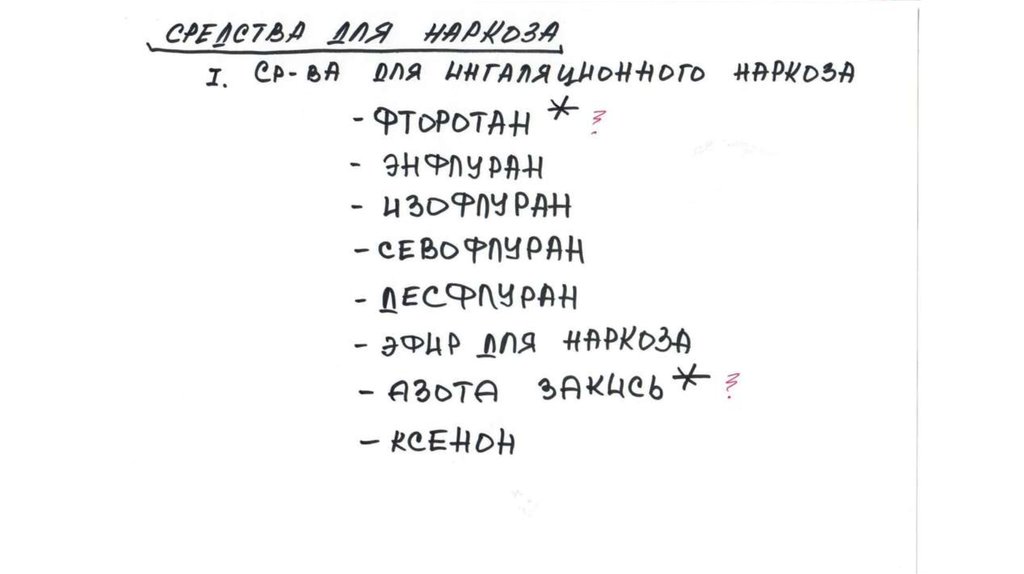 СРЕДСТВА ДЛЯ НАРКОЗА
I. СР-ВА ДЛЯ ИНГАЛЯЦИОННОГО НАРКОЗА
- ФТОРОТАН * ?
- ЭНФЛУРАН
- ИЗОФЛУРАН
- СЕВОФЛУРАН
- ДЕСФЛУРАН
- ЭФИР ДЛЯ НАРКОЗА
- АЗОТА ЗАКИСЬ * ?
- КСЕНОН